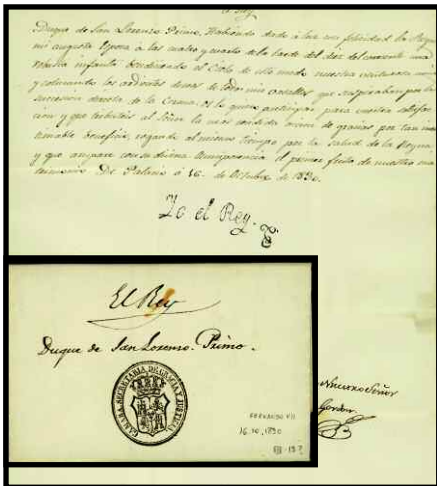 Duque de San Lorenzo Primo. Habiendo dado á luz con felicidad la Reyna
mi augusta Esposa á las cuatro y cuarto de la tarde del diez del corriente una
robusta infanta bendiciendo el Cielo de este modo nuestra union
y colmando los ardientes deseos de todos mis vasallos que suspiraban por la
sucesion directa de la Corona. os lo quiero anticipar para vuestra satisfac
cion y que tributeis al Señor la mas rendida accion de gracias por tan ines
timable beneficio, rogando al mismo tiempo por la salud de la Reyna
y que ampare con su divina Omnipotencia el primer fruto de nuestro ma
trimonio. De Palacio á 16 de Octubre de 1830.
Yo el Rey.
El Rey
Duque de San Lorenzo. Primo.
SECRETARIA DE GRACIA Y JUSTICIA
FERNANDO VII
16.10.1830
Nuestro Señor